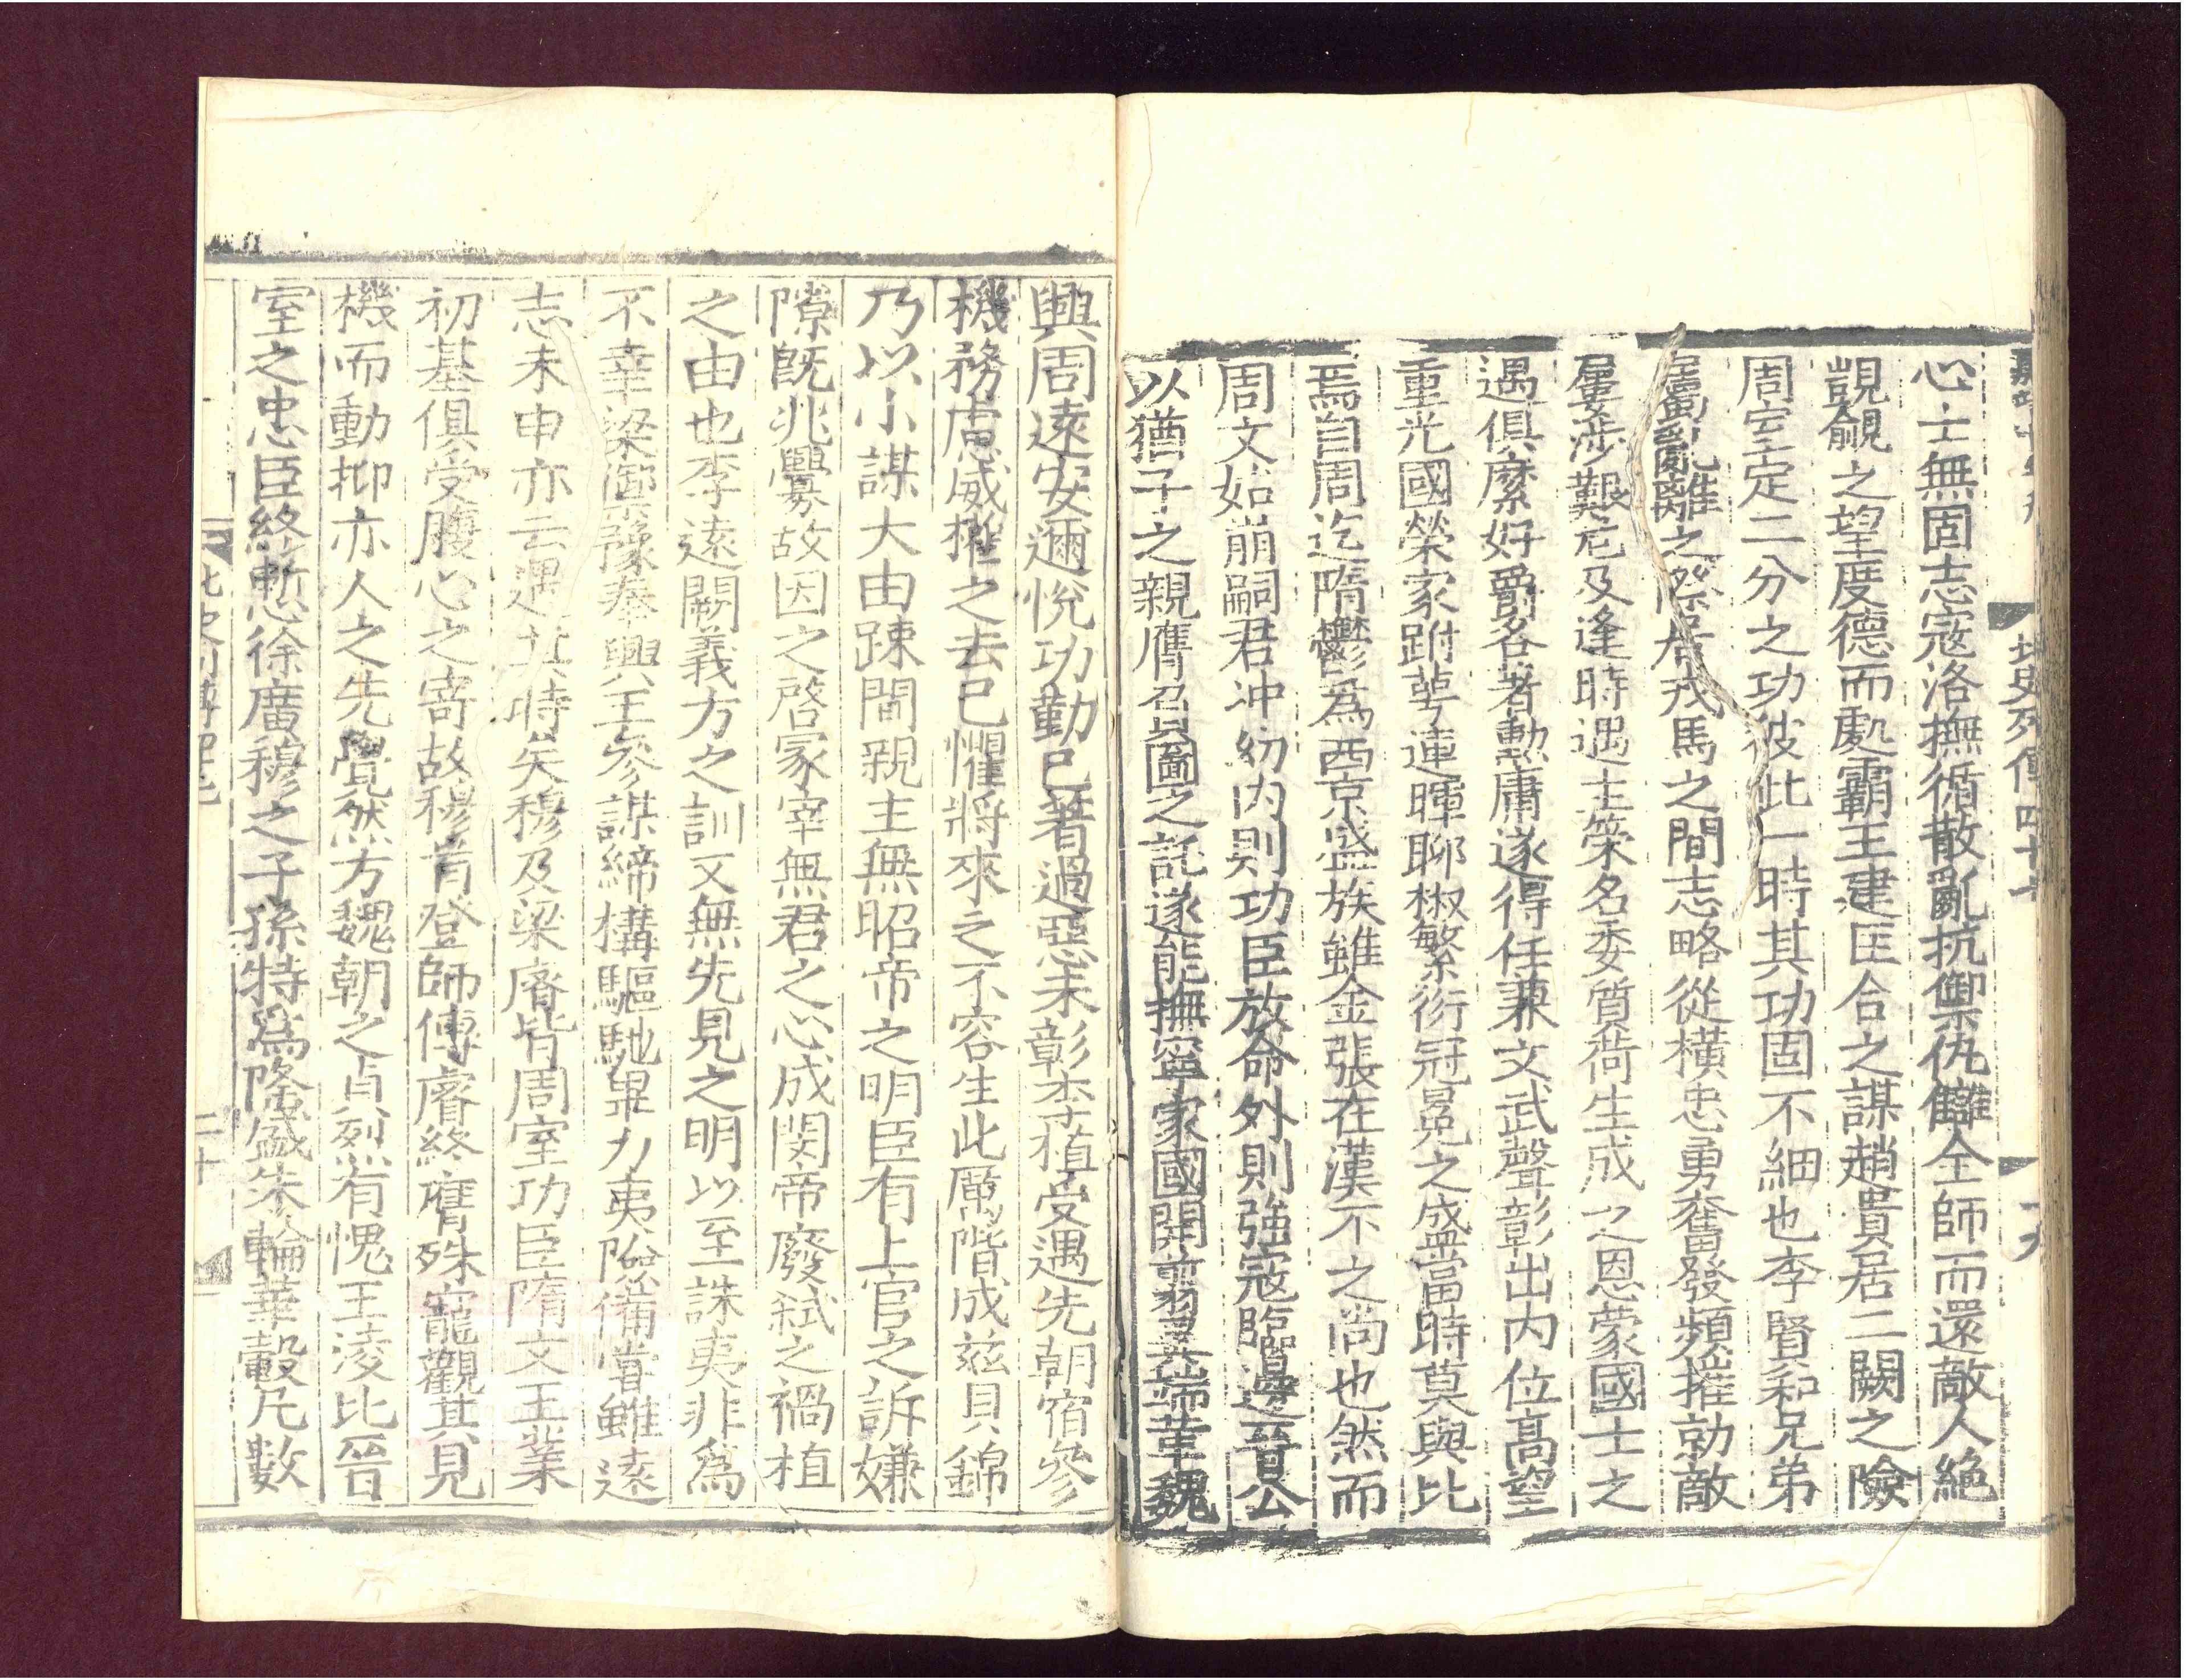 心士無固志寇洛撫循散亂抗禦仇讎全師而還敵人絕
覬覦之望度德而處霸王建匡合之謀趙貴居二闕之險
周室定二分之功彼此一時其功固不細也李賢和兄弟
屬亂離之際居戎馬之間志略從橫忠勇奮發頻摧勍敵
屢涉艱危及逢時遇主策名委質荷生成之恩蒙國士之
遇俱縻好爵各著勲庸遂得任兼文武聲彰出内位髙望
重光國榮家跗萼連暉聊椒繁衍冠冕之盛當時莫與比
焉自周迄隋鬱爲西京盛族雖金張在漢不之尚也然而
周文始崩嗣君冲幼内則功臣放命外則強寇臨邊晉公
以猶子之親膺負圖之託遂能撫寧家國開翦異端革魏
興周遠安邇悅功勤已著過惡未彰李植受遇先朝宿參
機務慮威權之去已懼將來之不容生此厲階成兹貝錦
乃以小謀大由踈間親主無昭帝之明臣有上官之訴嫌
隙旣兆釁故因之啓冢宰無君之心成閔帝廢弒之禍植
之由也李遠闕義方之訓又無先見之明以至誅夷非爲
不幸梁禦豫奉興王參謀締構驅馳畢力夷險備嘗雖遠
志未申亦云遇其時矣穆及梁睿皆周室功臣隋文王業
初基俱受腹心之寄故穆首登師傅睿終膺殊寵觀其見
機而動抑亦人之先覺然方魏朝之貞烈有愧王淩比晉
室之忠臣終慙徐廣穆之子孫特爲隆盛朱輪華轂凡數
北史列傳四十七
十九
二十